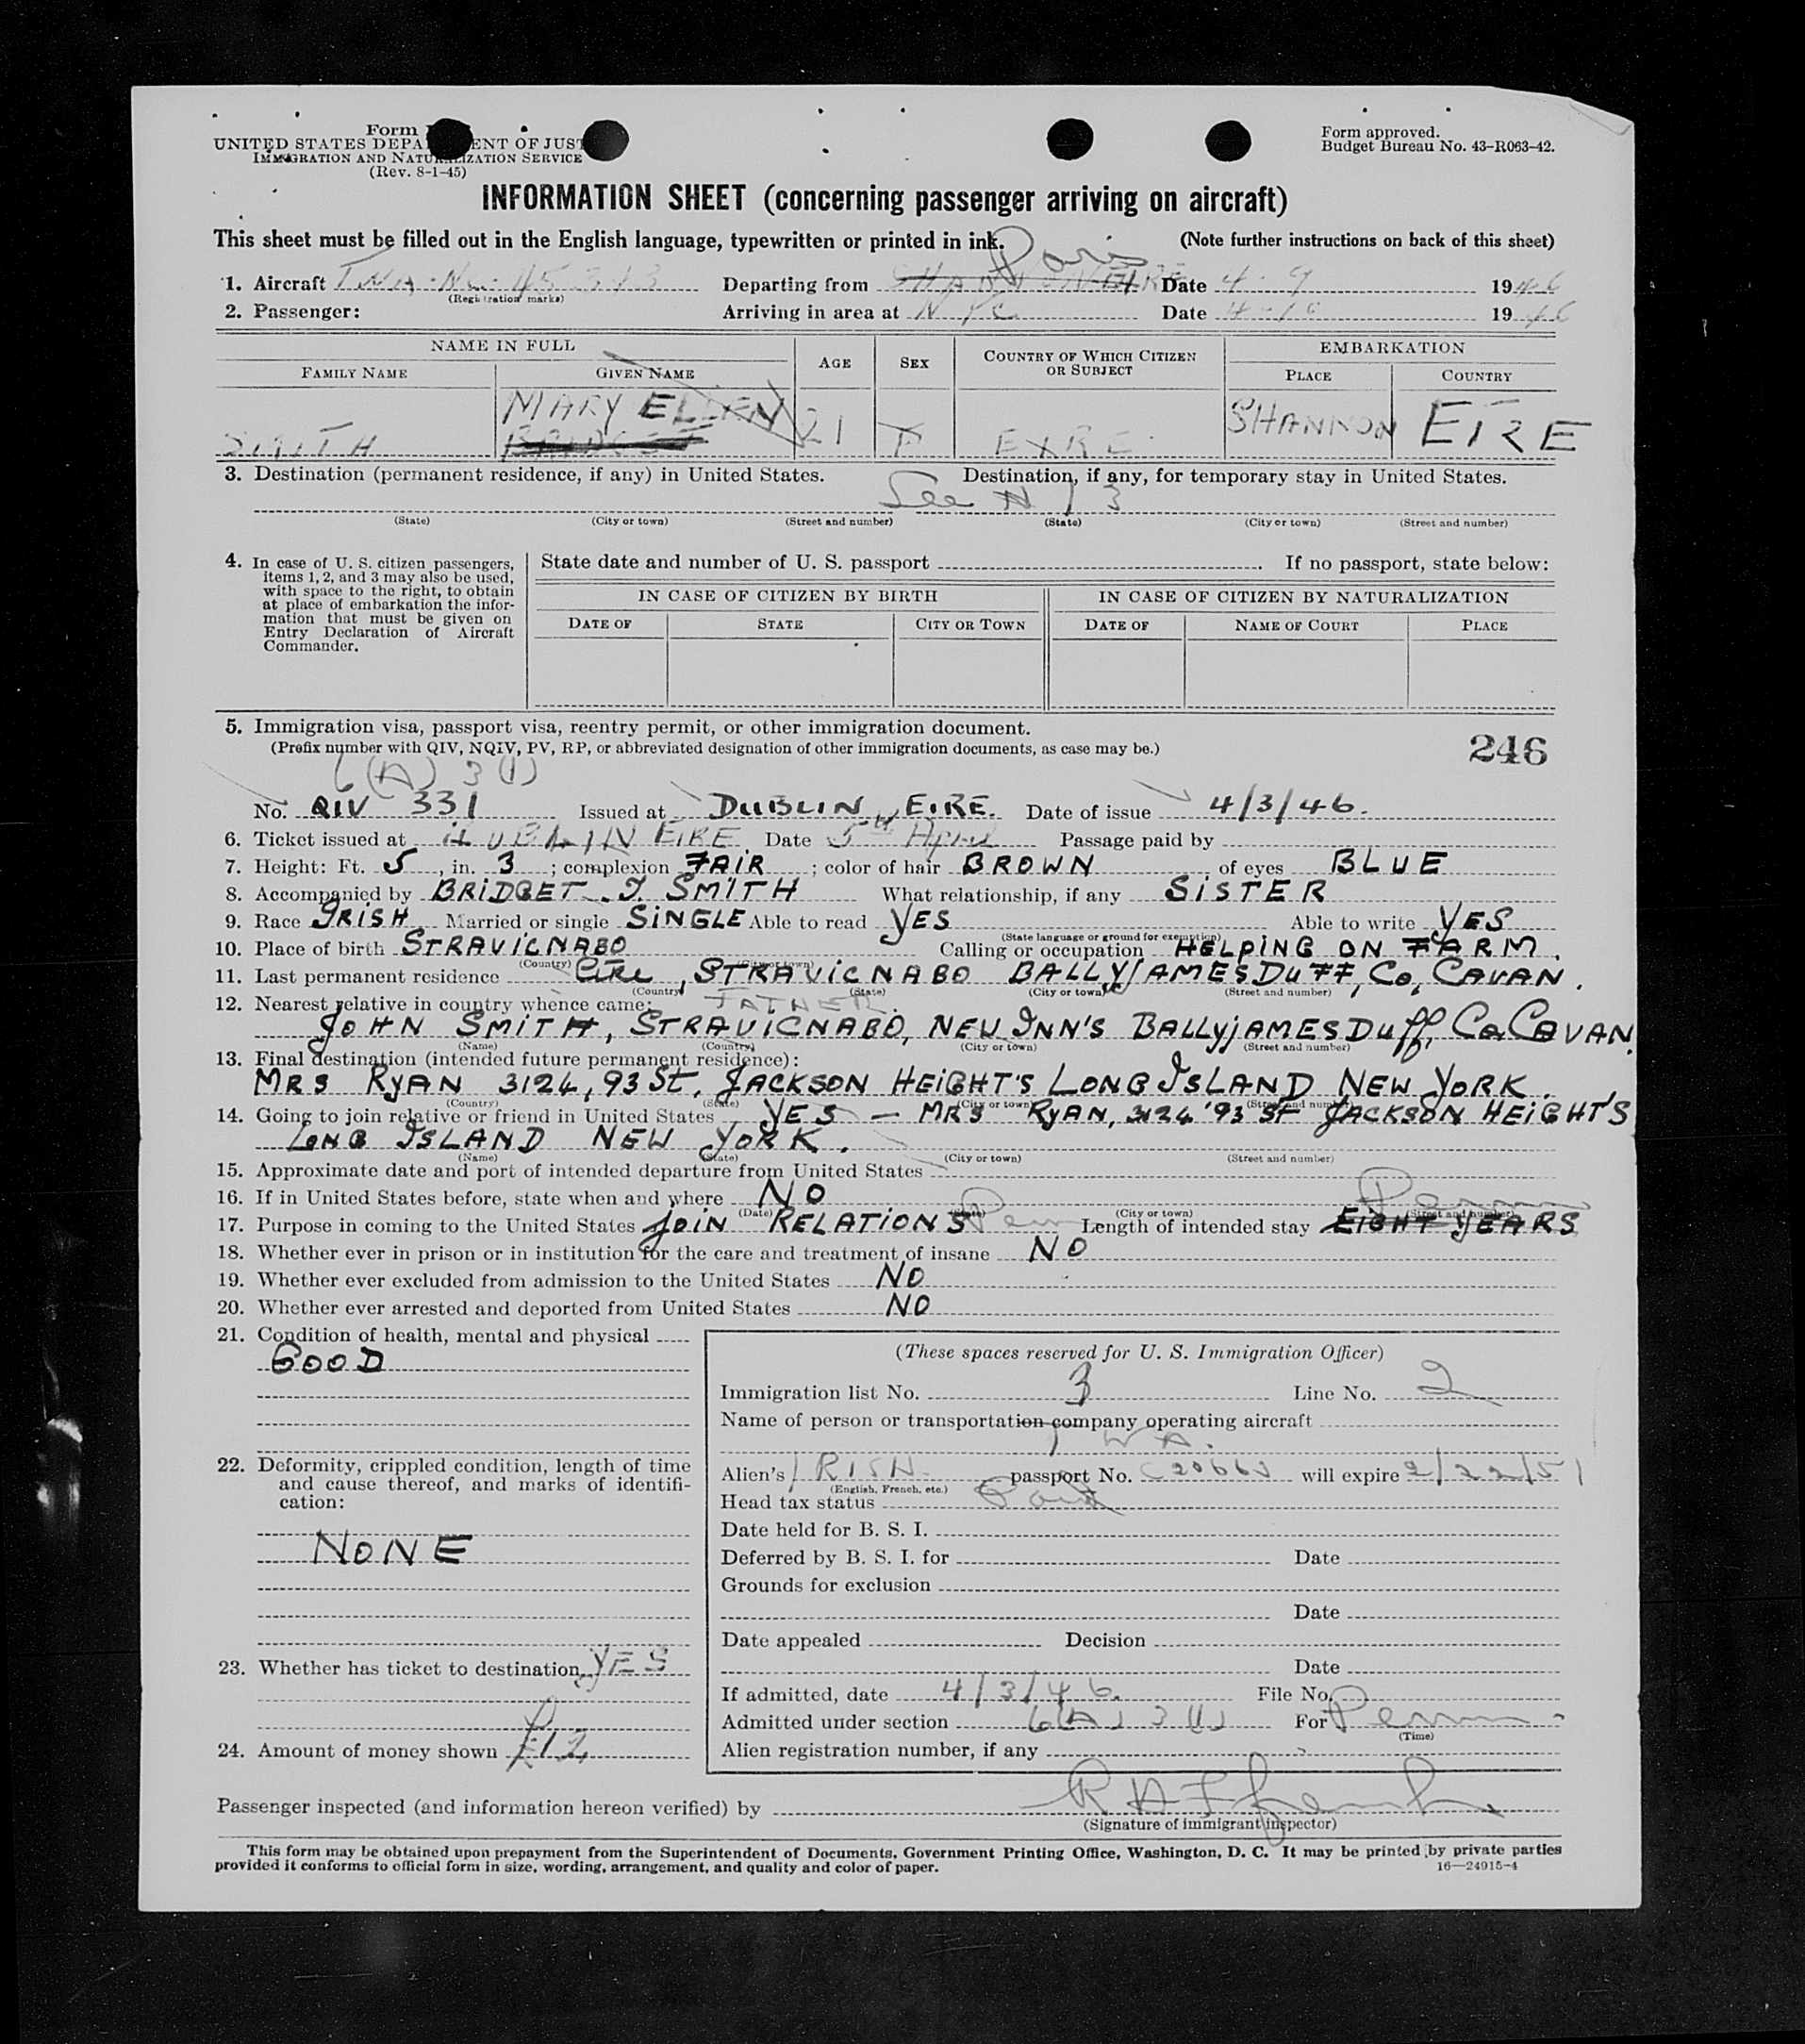 Form
UNITED STATES DEPA ENT OF JUST
IMMIGRATION AND NATURALIZATION SERVICE
(Rev. 8-1-45)
Form approved.
Budget Bureau No. 43-R063-42.
INFORMATION SHEET (concerning passenger arriving on aircraft)
This sheet must be filled out in the English language, typewritten or printed in ink. (Note further instructions on back of this sheet)
Paris
1. Aircraft 45313 Departing from Date 4-9 1946
(Registration marks)
2. Passenger: Arriving in area at NYC Date 4-10 1946
NAME IN FULL AGE SEX COUNTRY OF WHICH CITIZEN OR SUBJECT EMBARKATION
FAMILY NAME GIVEN NAME PLACE COUNTRY
SMITH MARY ELLEN 21 F EIRE SHANNON EIRE
3. Destination (permanent residence, if any) in United States. Destination, if any, for temporary stay in United States.
See N 13
(State) (City or town) (Street and number) (State) (City or town) (Street and number)
4. In case of U. S. citizen passengers, items 1, 2, and 3 may also be used, with space to the right, to obtain at place of embarkation the information that must be given on Entry Declaration of Aircraft Commander.
State date and number of U. S. passport If no passport, state below:
IN CASE OF CITIZEN BY BIRTH IN CASE OF CITIZEN BY NATURALIZATION
DATE OF STATE CITY OR TOWN DATE OF NAME OF COURT PLACE
5. Immigration visa, passport visa, reentry permit, or other immigration document.
(Prefix number with QIV, NQIV, PV, RP, or abbreviated designation of other immigration documents, as case may be.)
246
6(A) 3(1)
No. QIV 331 Issued at DUBLIN EIRE. Date of issue 4/3/46.
6. Ticket issued at DUBLIN EIRE Date 5th April Passage paid by
7. Height: Ft. 5, in. 3; complexion FAIR; color of hair BROWN of eyes BLUE
8. Accompanied by BRIDGET. J. SMITH What relationship, if any SISTER
9. Race IRISH Married or single SINGLE Able to read YES Able to write YES
(State language or ground for exemption)
10. Place of birth STRAVICNABO Calling or occupation HELPING ON FARM.
(Country) (City or town)
11. Last permanent residence Eire, STRAVICNABO BALLYJAMESDUFF, Co, CAVAN.
(Country) (State) (City or town) (Street and number)
12. Nearest relative in country whence came: FATHER.
JOHN SMITH, STRAVICNABO, NEW INN'S BALLYJAMESDUFF, Co CAVAN.
(Name) (Country) (City or town) (Street and number)
13. Final destination (intended future permanent residence):
MRS RYAN 3124, 93 St, JACKSON HEIGHT'S LONG ISLAND NEW YORK.
(Country) (State) (City or town) (Street and number)
14. Going to join relative or friend in United States YES — MRS RYAN, 3124 '93 ST JACKSON HEIGHTS
LONG ISLAND NEW YORK.
(Name) (State) (City or town) (Street and number)
15. Approximate date and port of intended departure from United States
16. If in United States before, state when and where NO
(Date) (State) (City or town) (Street and number)
Perm
17. Purpose in coming to the United States JOIN RELATIONS Perm Length of intended stay EIGHT YEARS
18. Whether ever in prison or in institution for the care and treatment of insane NO
19. Whether ever excluded from admission to the United States NO
20. Whether ever arrested and deported from United States NO
21. Condition of health, mental and physical
GOOD
22. Deformity, crippled condition, length of time and cause thereof, and marks of identification:
NONE
23. Whether has ticket to destination YES
24. Amount of money shown £12
(These spaces reserved for U. S. Immigration Officer)
Immigration list No. 3 Line No. 2
Name of person or transportation company operating aircraft
TWA.
Alien's IRISH passport No. will expire 2/22/51
(English, French, etc.)
Head tax status Paid
Date held for B. S. I.
Deferred by B. S. I. for Date
Grounds for exclusion
Date
Date appealed Decision
Date
If admitted, date 4/3/46. File No.
Admitted under section 6(A) 3(1) For Perm
(Time)
Alien registration number, if any
Passenger inspected (and information hereon verified) by
(Signature of immigrant inspector)
This form may be obtained upon prepayment from the Superintendent of Documents, Government Printing Office, Washington, D. C. It may be printed by private parties
provided it conforms to official form in size, wording, arrangement, and quality and color of paper. 16—24915-4